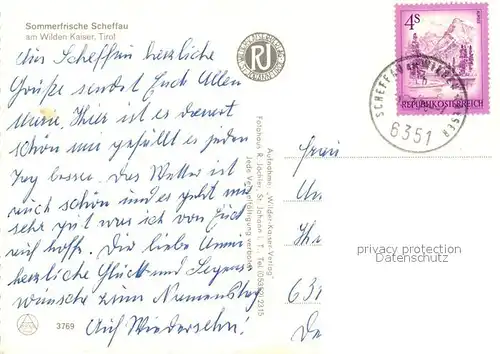 Sommerfrische Scheffau
am Wilden Kaiser, Tirol
Aus Scheffau herzliche
Grüße sendet Euch Allen
Hier ist es derart
schön mir gefällt es jeden
Tag besser. Das Wetter ist
auch schön und es geht mir
sehr gut was ich von Euch
auch hoffe. Die liebe
herzliche Glück- und Segens
wünsche zum Namenstag
Auf Wiedersehn!
3769
RJ
Aufnahme: „Wilder-Kaiser-Verlag"
Fotohaus R. Jöchler, St. Johann i. T., Tel. (05352) 2315
Jede Vervielfältigung verboten
4S
REPUBLIK ÖSTERREICH
SCHEFFAU AM WILDEN KAISER
6351
privacy protection
Datenschutz